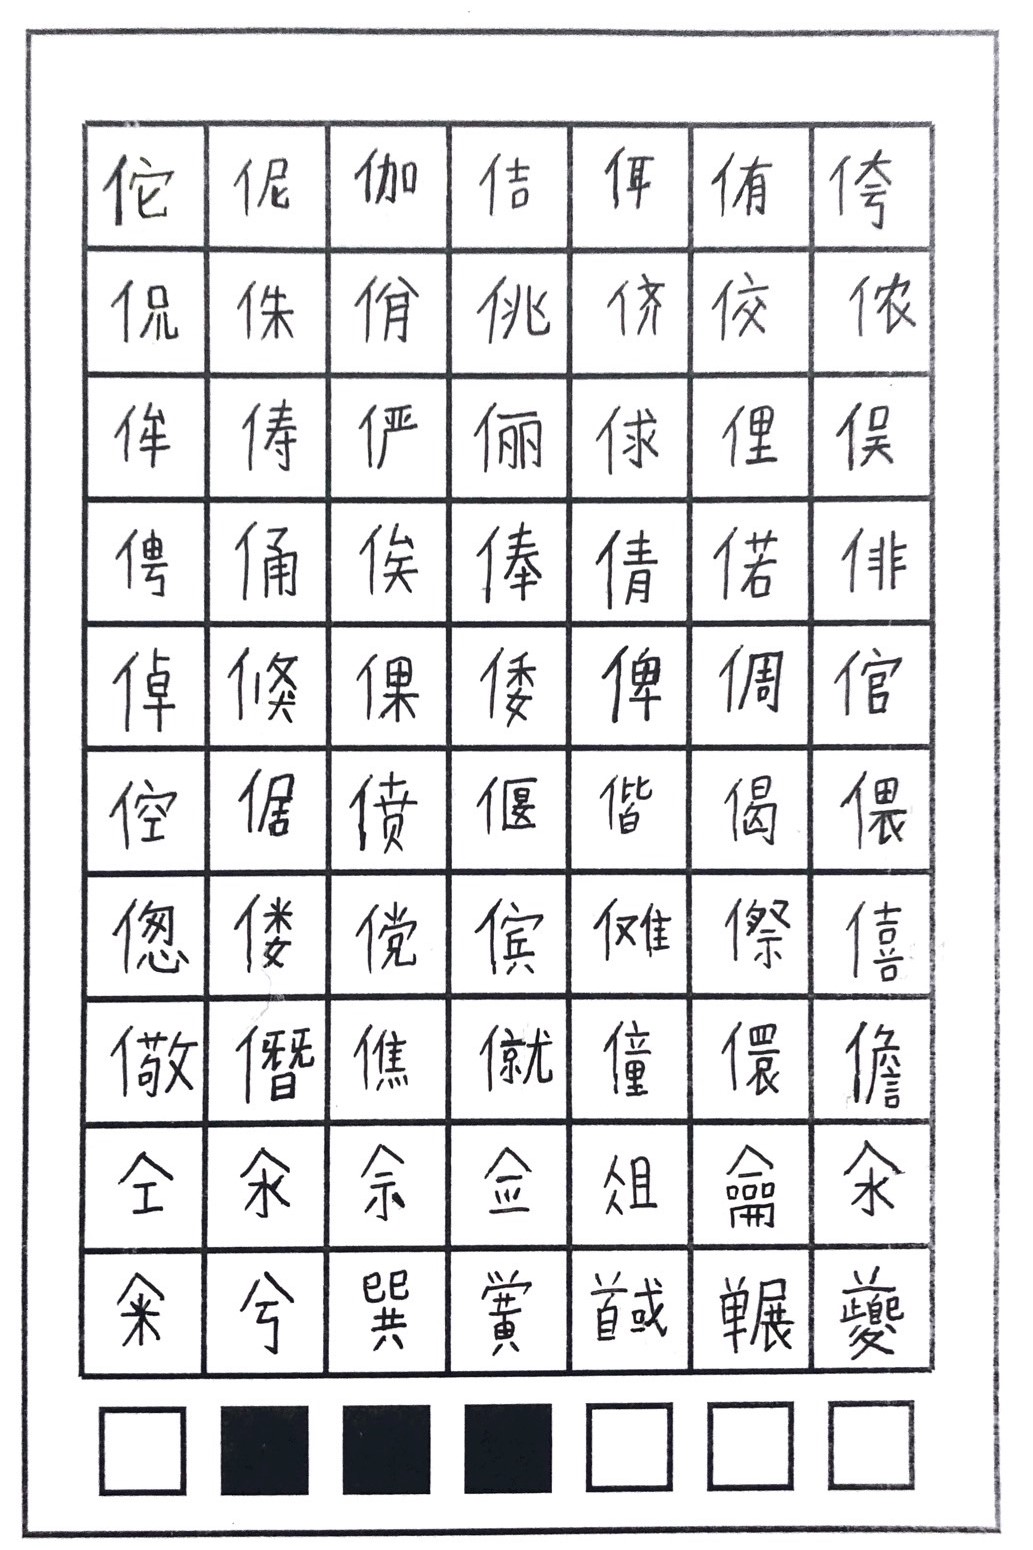 佗 伲 伽 佶 佴 侑 侉
侃 侏 佾 佻 侪 佼 侬
侔 俦 俨 俪 俅 俚 俣
俜 俑 俟 俸 倩 偌 俳
倬 倏 倮 倭 俾 倜 倌
倥 倨 偾 偃 偕 偈 偎
偬 偻 傥 傧 傩 傺 僖
儆 僭 僬 僦 僮 儇 儋
仝 氽 佘 佥 俎 龠 汆
籴 兮 巽 黉 馘 冁 夔